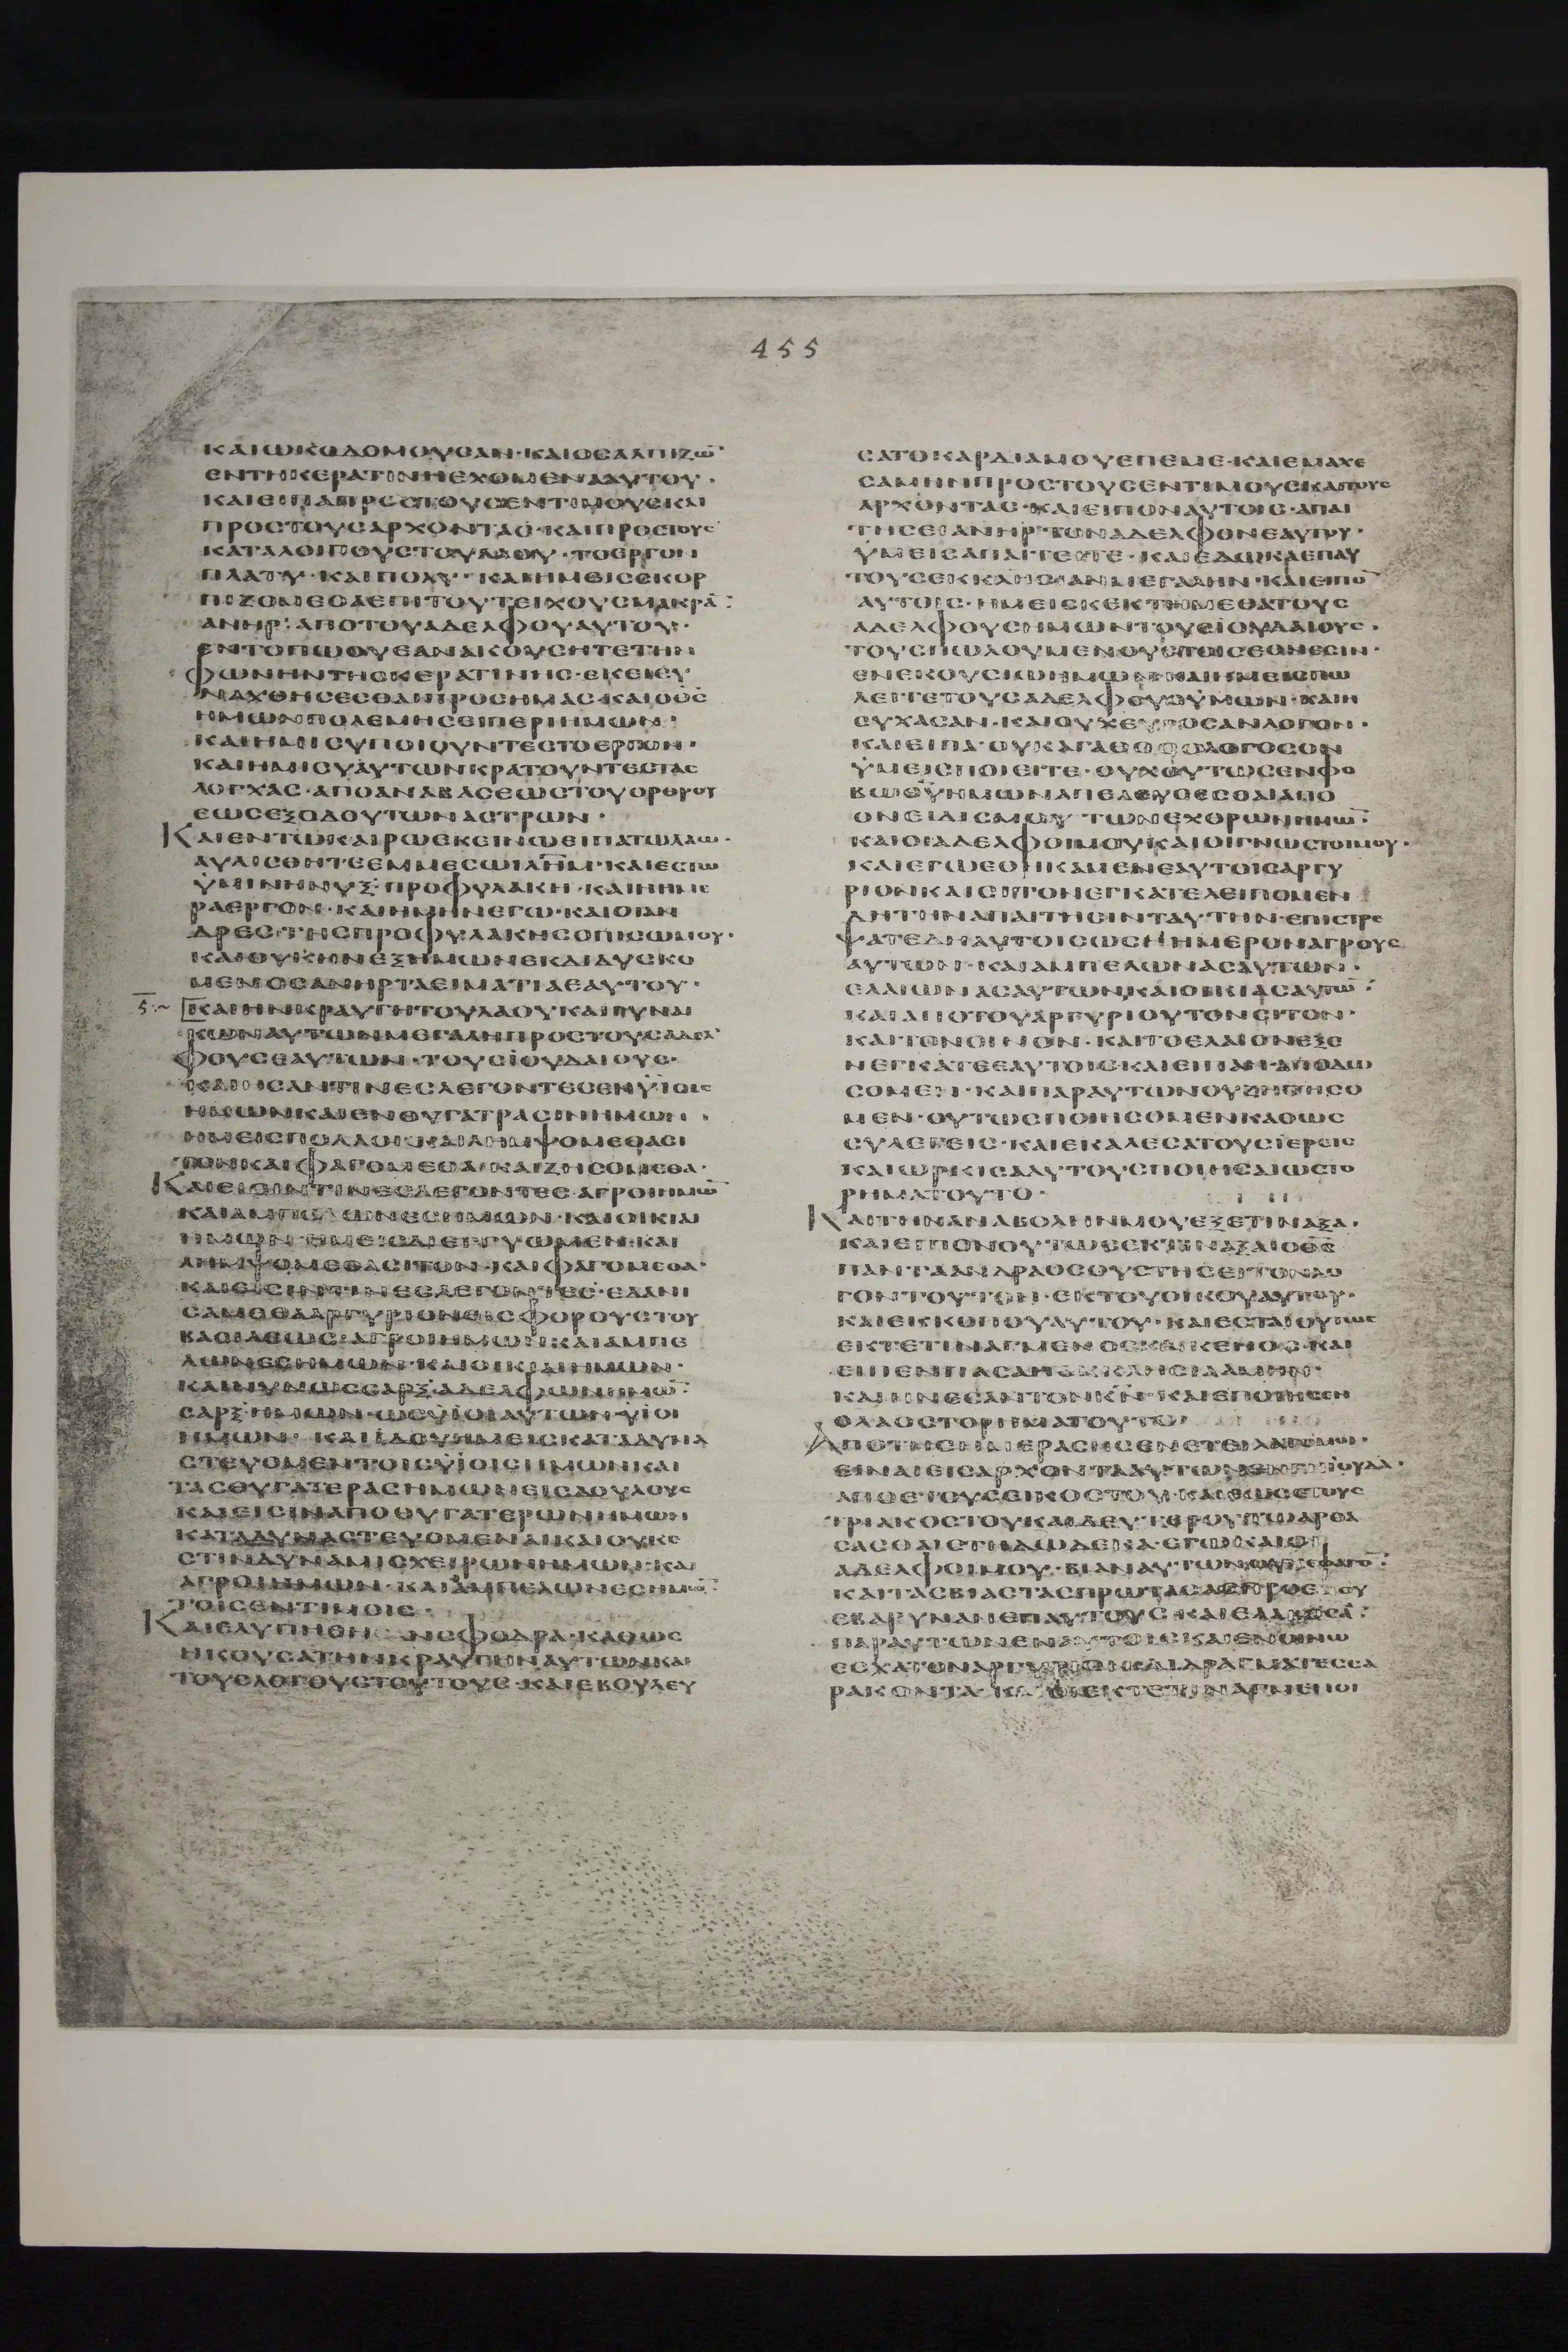 455
ΚΑΙΩΚΟΔΟΜΟΥϹΑΝ·ΚΑΙΟϹΑΛΠΙΖΩ̅·
ΕΝΤΗΚΕΡΑΤΙΝΗΕΧΟΜΕΝΑΑΥΤΟΥ·
ΚΑΙΕΙΠΑΠΡΟϹΤΟΥϹΕΝΤΙΜΟΥϹΚΑΙ
ΠΡΟϹΤΟΥϹΑΡΧΟΝΤΑϹ·ΚΑΙΠΡΟϹΤΟΥϹ
ΚΑΤΑΛΟΙΠΟΥϹΤΟΥΛΑΟΥ·ΤΟΕΡΓΟΝ
ΠΛΑΤΥ·ΚΑΙΠΟΛΥ·ΚΑΙΗΜΕΙϹϹΚΟΡ
ΠΙΖΟΜΕΘΑΕΠΙΤΟΥΤΕΙΧΟΥϹΜΑΚΡΑ̅:
ΑΝΗΡ·ΑΠΟΤΟΥΑΔΕΛΦΟΥΑΥΤΟΥ·
ΕΝΤΟΠΩΟΥΕΑΝΑΚΟΥϹΗΤΕΤΗΝ
ΦΩΝΗΝΤΗϹΚΕΡΑΤΙΝΗϹ·ΕΚΕΙϹΥ
ΝΑΧΘΗϹΕϹΘΑΙΠΡΟϹΗΜΑϹ·ΚΑΙΟΘ̅Ϲ̅
ΗΜΩΝΠΟΛΕΜΗϹΕΙΠΕΡΙΗΜΩΝ·
ΚΑΙΗΜΙϹΥΠΟΙΟΥΝΤΕϹΤΟΕΡΓΟΝ·
ΚΑΙΗΜΙϹΥΑΥΤΩΝΚΡΑΤΟΥΝΤΕϹΤΑϹ
ΛΟΓΧΑϹ·ΑΠΟΑΝΑΒΑϹΕΩϹΤΟΥΟΡΘΡΟΥ
ΕΩϹΕΞΟΔΟΥΤΩΝΑϹΤΡΩΝ·
ΚΑΙΕΝΤΩΚΑΙΡΩΕΚΕΙΝΩΕΙΠΑΤΩΛΑΩ·
ΑΥΛΙϹΘΗΤΕΕΜΜΕϹΩΙΛ̅Η̅Μ̅·ΚΑΙΕϹΤΩ
ΫΜΙΝΗΝΥΞ·ΠΡΟΦΥΛΑΚΗ·ΚΑΙΗΗΜΕ
ΡΑΕΡΓΟΝ·ΚΑΙΗΜΗΝΕΓΩ·ΚΑΙΟΙΑΝ
ΔΡΕϹΤΗϹΠΡΟΦΥΛΑΚΗϹΟΠΙϹΩΜΟΥ·
ΚΑΙΟΥΚΗΝΕΞΗΜΩΝΕΚΔΙΔΥϹΚΟ
ΜΕΝΟϹΑΝΗΡΤΑΕΙΜΑΤΙΑΕΑΥΤΟΥ·
Ε̅·~ ΚΑΙΗΝΚΡΑΥΓΗΤΟΥΛΑΟΥΚΑΙΓΥΝΑΙ
ΚΩΝΑΥΤΩΝΜΕΓΑΛΗΠΡΟϹΤΟΥϹΑΔΕΛ
ΦΟΥϹΕΑΥΤΩΝ·ΤΟΥϹΪΟΥΔΑΙΟΥϹ·
ΚΑΙΗϹΑΝΤΙΝΕϹΛΕΓΟΝΤΕϹΕΝΫΪΟΙϹ
ΗΜΩΝΚΑΙΕΝΘΥΓΑΤΡΑϹΙΝΗΜΩΝ·
ΗΜΕΙϹΠΟΛΛΟΙΚΑΙΛΗΜΨΟΜΕΘΑϹΙ
ΤΟΝΚΑΙΦΑΓΟΜΕΘΑ·ΚΑΙΖΗϹΟΜΕΘΑ·
ΚΑΙΕΙϹΙΝΤΙΝΕϹΛΕΓΟΝΤΕϹ·ΑΓΡΟΙΗΜΩ̅
ΚΑΙΑΜΠΕΛΩΝΕϹΗΜΩΝ·ΚΑΙΟΙΚΙΑΙ
ΗΜΩΝ·ΗΜΕΙϹΔΙΕΓΓΥΩΜΕΝ·ΚΑΙ
ΛΗΜΨΟΜΕΘΑϹΙΤΟΝ·ΚΑΙΦΑΓΟΜΕΘΑ·
ΚΑΙΕΙϹΙΝΤΙΝΕϹΛΕΓΟΝΤΕϹ·ΕΔΑΝΙ
ϹΑΜΕΘΑΑΡΓΥΡΙΟΝΕΙϹΦΟΡΟΥϹΤΟΥ
ΒΑϹΙΛΕΩϹ·ΑΓΡΟΙΗΜΩΝ·ΚΑΙΑΜΠΕ
ΛΩΝΕϹΗΜΩΝ·ΚΑΙΟΙΚΙΑΙΗΜΩΝ·
ΚΑΙΝΥΝΩϹϹΑΡΞ·ΑΔΕΛΦΩΝΗΜΩ̅:
ϹΑΡΞ·ΗΜΩΝ·ΩϹΫΪΟΙΑΥΤΩΝ·ΫΙΟΙ
ΗΜΩΝ·ΚΑΙΪΔΟΥΗΜΕΙϹΚΑΤΑΔΥΝΑ
ϹΤΕΥΟΜΕΝΤΟΥϹΫΪΟΥϹΗΜΩΝΚΑΙ
ΤΑϹΘΥΓΑΤΕΡΑϹΗΜΩΝΕΙϹΔΟΥΛΟΥϹ
ΚΑΙΕΙϹΙΝΑΠΟΘΥΓΑΤΕΡΩΝΗΜΩΝ
ΚΑΤΑΔΥΝΑϹΤΕΥΟΜΕΝΑΙΚΑΙΟΥΚΕ
ϹΤΙΝΔΥΝΑΜΙϹΧΕΙΡΩΝΗΜΩΝ·ΚΑΙ
ΑΓΡΟΙΗΜΩΝ·ΚΑΙΑΜΠΕΛΩΝΕϹΗΜΩ̅:
ΤΟΙϹΕΝΤΙΜΟΙϹ·
ΚΑΙΕΛΥΠΗΘΗΝϹΦΟΔΡΑ·ΚΑΘΩϹ
ΗΚΟΥϹΑΤΗΝΚΡΑΥΓΗΝΑΥΤΩΝΚΑΙ
ΤΟΥϹΛΟΓΟΥϹΤΟΥΤΟΥϹ·ΚΑΙΕΒΟΥΛΕΥ
ϹΑΤΟΚΑΡΔΙΑΜΟΥΕΠΕΜΕ·ΚΑΙΕΜΑΧΕ
ϹΑΜΗΝΠΡΟϹΤΟΥϹΕΝΤΙΜΟΥϹΚΑΙΤΟΥϹ
ΑΡΧΟΝΤΑϹ·ΚΑΙΕΙΠΟΝΑΥΤΟΙϹ·ΑΠΑΙ
ΤΗϹΕΙΑΝΗΡ·ΤΟΝΑΔΕΛΦΟΝΕΑΥΤΟΥ·
ΫΜΕΙϹΑΠΑΙΤΕΙΤΕ·ΚΑΙΕΔΩΚΑΕΠΑΥ
ΤΟΥϹΕΚΚΛΗϹΙΑΝΜΕΓΑΛΗΝ·ΚΑΙΕΙΠΟ̅
ΑΥΤΟΙϹ·ΗΜΕΙϹΚΕΚΤΗΜΕΘΑΤΟΥϹ
ΑΔΕΛΦΟΥϹΗΜΩΝΤΟΥϹΪΟΥΔΑΙΟΥϹ·
ΤΟΥϹΠΩΛΟΥΜΕΝΟΥϹΤΟΙϹΕΘΝΕϹΙΝ·
ΕΝΕΚΟΥϹΙΩΗΜΩΝ·ΚΑΙΗΜΕΙϹΠΩ
ΛΕΙΤΕΤΟΥϹΑΔΕΛΦΟΥϹΫΜΩΝ·ΚΑΙΗ
ϹΥΧΑϹΑΝ·ΚΑΙΟΥΧΕΥΡΟϹΑΝΛΟΓΟΝ·
ΚΑΙΕΙΠΑ·ΟΥΚΑΓΑΘΟϹΟΛΟΓΟϹΟΝ
ΫΜΕΙϹΠΟΙΕΙΤΕ·ΟΥΧΟΥΤΩϹΕΝΦΟ
ΒΩΘ̅Υ̅ΗΜΩΝΑΠΕΛΕΥϹΕϹΘΑΙΑΠΟ
ΟΝΕΙΔΙϹΜΟΥ·ΤΩΝΕΧΘΡΩΝΗΜΩ̅:
ΚΑΙΟΙΑΔΕΛΦΟΙΜΟΥΚΑΙΟΙΓΝΩϹΤΟΙΜΟΥ·
ΚΑΙΕΓΩΕΘΗΚΑΜΕΝΕΑΥΤΟΙϹΑΡΓΥ
ΡΙΟΝΚΑΙϹΙΤΟΝΕΓΚΑΤΕΛΕΙΠΟΜΕΝ
ΔΗΤΗΝΑΠΑΙΤΗϹΙΝΤΑΥΤΗΝ·ΕΠΙϹΤΡΕ
ΨΑΤΕΔΗΑΥΤΟΙϹΩϹϹΗΜΕΡΟΝΑΓΡΟΥϹ
ΑΥΤΩΝ·ΚΑΙΑΜΠΕΛΩΝΑϹΑΥΤΩΝ·
ΕΛΑΙΩΝΑϹΑΥΤΩΝΚΑΙΟΙΚΙΑϹΑΥΤΩ̅:
ΚΑΙΑΠΟΤΟΥΑΡΓΥΡΙΟΥΤΟΝϹΙΤΟΝ·
ΚΑΙΤΟΝΟΙΝΟΝ·ΚΑΙΤΟΕΛΑΙΟΝΕΞΕ
ΝΕΓΚΑΤΕΕΑΥΤΟΙϹΚΑΙΕΙΠΑΝ·ΑΠΟΔΩ
ϹΟΜΕΝ·ΚΑΙΠΑΡΑΥΤΩΝΟΥΖΗΤΗϹΟ
ΜΕΝ·ΟΥΤΩϹΠΟΙΗϹΟΜΕΝΚΑΘΩϹ
ϹΥΛΕΓΕΙϹ·ΚΑΙΕΚΑΛΕϹΑΤΟΥϹΪΕΡΕΙϹ
ΚΑΙΩΡΚΙϹΑΑΥΤΟΥϹΠΟΙΗϹΑΙΩϹΤΟ
ΡΗΜΑΤΟΥΤΟ·
ΚΑΙΤΗΝΑΝΑΒΟΛΗΝΜΟΥΕΞΕΤΙΝΑΞΑ·
ΚΑΙΕΙΠΟΝΟΥΤΩϹΕΚΤΙΝΑΞΑΙΟΘ̅Ϲ̅
ΠΑΝΤΑΑΝΔΡΑΟϹΟΥϹΤΗϹΕΙΤΟΝΛΟ
ΓΟΝΤΟΥΤΟΝ·ΕΚΤΟΥΟΙΚΟΥΑΥΤΟΥ·
ΚΑΙΕΚΚΟΠΟΥΑΥΤΟΥ·ΚΑΙΕϹΤΑΙΟΥΤΩϹ
ΕΚΤΕΤΙΝΑΓΜΕΝΟϹΚΑΙΚΕΝΟϹ·ΚΑΙ
ΕΙΠΕΝΠΑϹΑΗΕΚΚΛΗϹΙΑΑΜΗΝ·
ΚΑΙΗΝΕϹΑΝΤΟΝΚ̅Ν̅·ΚΑΙΕΠΟΙΗϹΕΝ
ΟΛΑΟϹΤΟΡΗΜΑΤΟΥΤΟ·
ΑΠΟΤΗϹΗΜΕΡΑϹΗϹΕΝΕΤΕΙΛΑΤΟΜΟΙ·
ΕΙΝΑΙΕΙϹΑΡΧΟΝΤΑΑΥΤΩΝΕΝΓΗΪΟΥΔΑ·
ΑΠΟΕΤΟΥϹΕΙΚΟϹΤΟΥ·ΚΑΙΕΩϹΕΤΟΥϹ
ΤΡΙΑΚΟϹΤΟΥΚΑΙΔΕΥΤΕΡΟΥΤΩΑΡΘΑ
ϹΑϹΘΑΙΕΤΗΔΩΔΕΚΑ·ΕΓΩΚΑΙΟΙ
ΑΔΕΛΦΟΙΜΟΥ·ΒΙΑΝΑΥΤΩΝΟΥΚΕΦΑΓΟ̅:
ΚΑΙΤΑϹΒΙΑϹΤΑϹΠΡΩΤΑϹΑϹΠΡΟΕΜΟΥ
ΕΒΑΡΥΝΑΝΕΠΑΥΤΟΥϹ·ΚΑΙΕΛΑΒΟϹΑ̅:
ΠΑΡΑΥΤΩΝΕΝΑΡΤΟΙϹΚΑΙΕΝΟΙΝΩ
ΕϹΧΑΤΟΝΑΡΓΥΡΙΟΝΔΙΔΡΑΓΜΑΤΕϹϹΑ
ΡΑΚΟΝΤΑ·ΚΑΙΟΙΕΚΤΕΤΙΝΑΓΜΕΝΟΙ